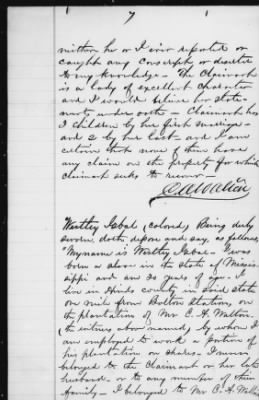 7
neither he or I ever reported or
caught any conscript or deserter
to my knowledge - The Claimant
is a lady of excellent character
and I would believe her state-
ments under oath - Claimant has
children by her first marriage
and 2 by her last and I am
certain that none of them have
any claim on the property for which
claimant seeks to recover -
Walton
Wattley Isbal (colored) Being duly
sworn doth, depose and say, as follows,
"My name is Wattley Isbal - I was
born a slave in the State of Missis-
sippi and am 30 years of age - I
live in Hinds County in said State
one mile from Bolton Station, on
the plantation of Mr C. H. Walton,
(the witness above named) by whom I
am employed to work a portion of
his plantation on shares - I never
belonged to the Claimant or her late
husband, or to any member of their
family - I belonged to Mr C. H. Walton